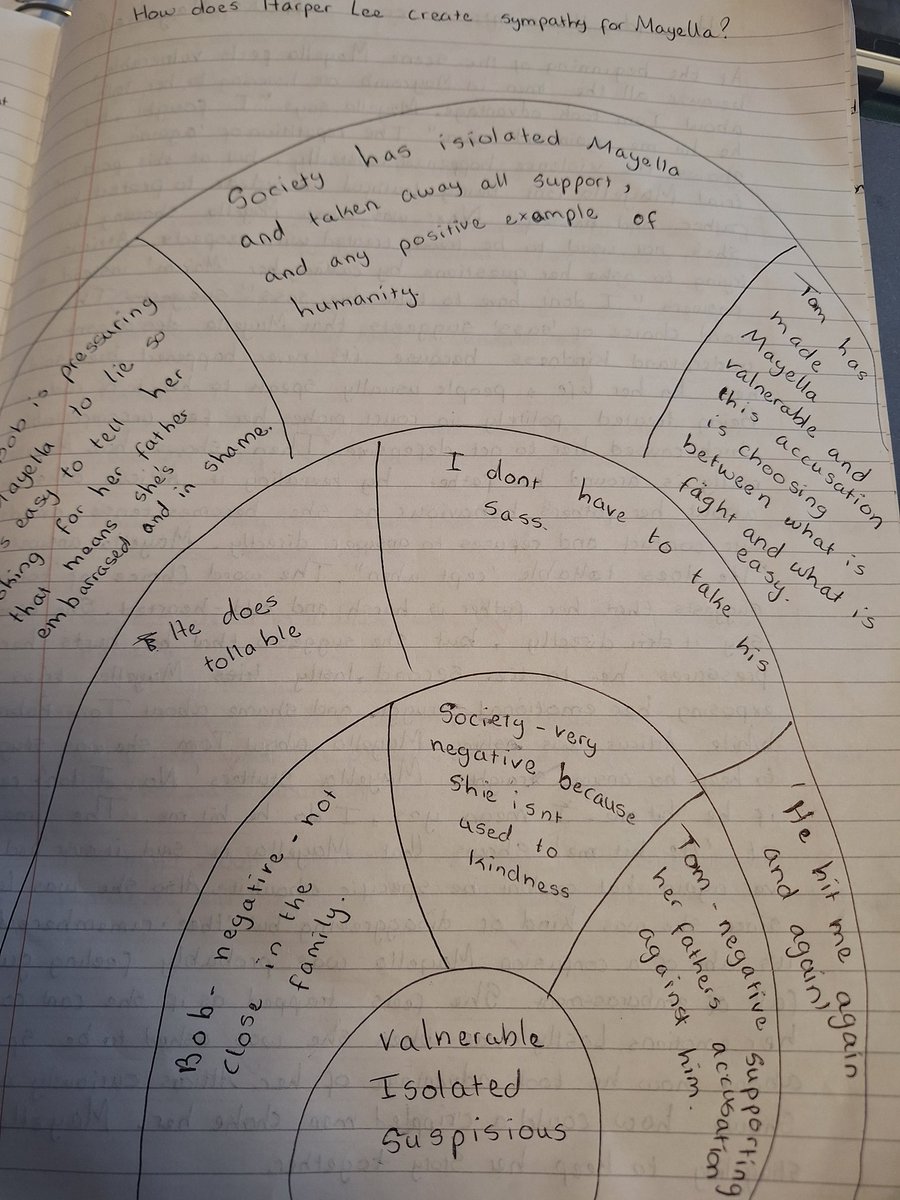 How does Harper Lee create sympathy for Mayella?
Society has isiolated Mayella
and taken away all support,
and any positive example of
humanity.
Bob is pressuring
Mayella to lie so
easy to tell her
for her father
that means she's
embarrased and in shame.
Tom has
made
Mayella
valnerable and
this accusation
is choosing
between what is
fäght and what is
easy.
He does
tollable
I dont have to take his
Sass.
'He hit me again
and again'
Bob - negative - not
close in the
family.
Society - very
negative because
Shie isnt
used to
kindness
Tom - negative supporting
her fathers accusation
against him.
Valnerable
Isolated
Suspisious